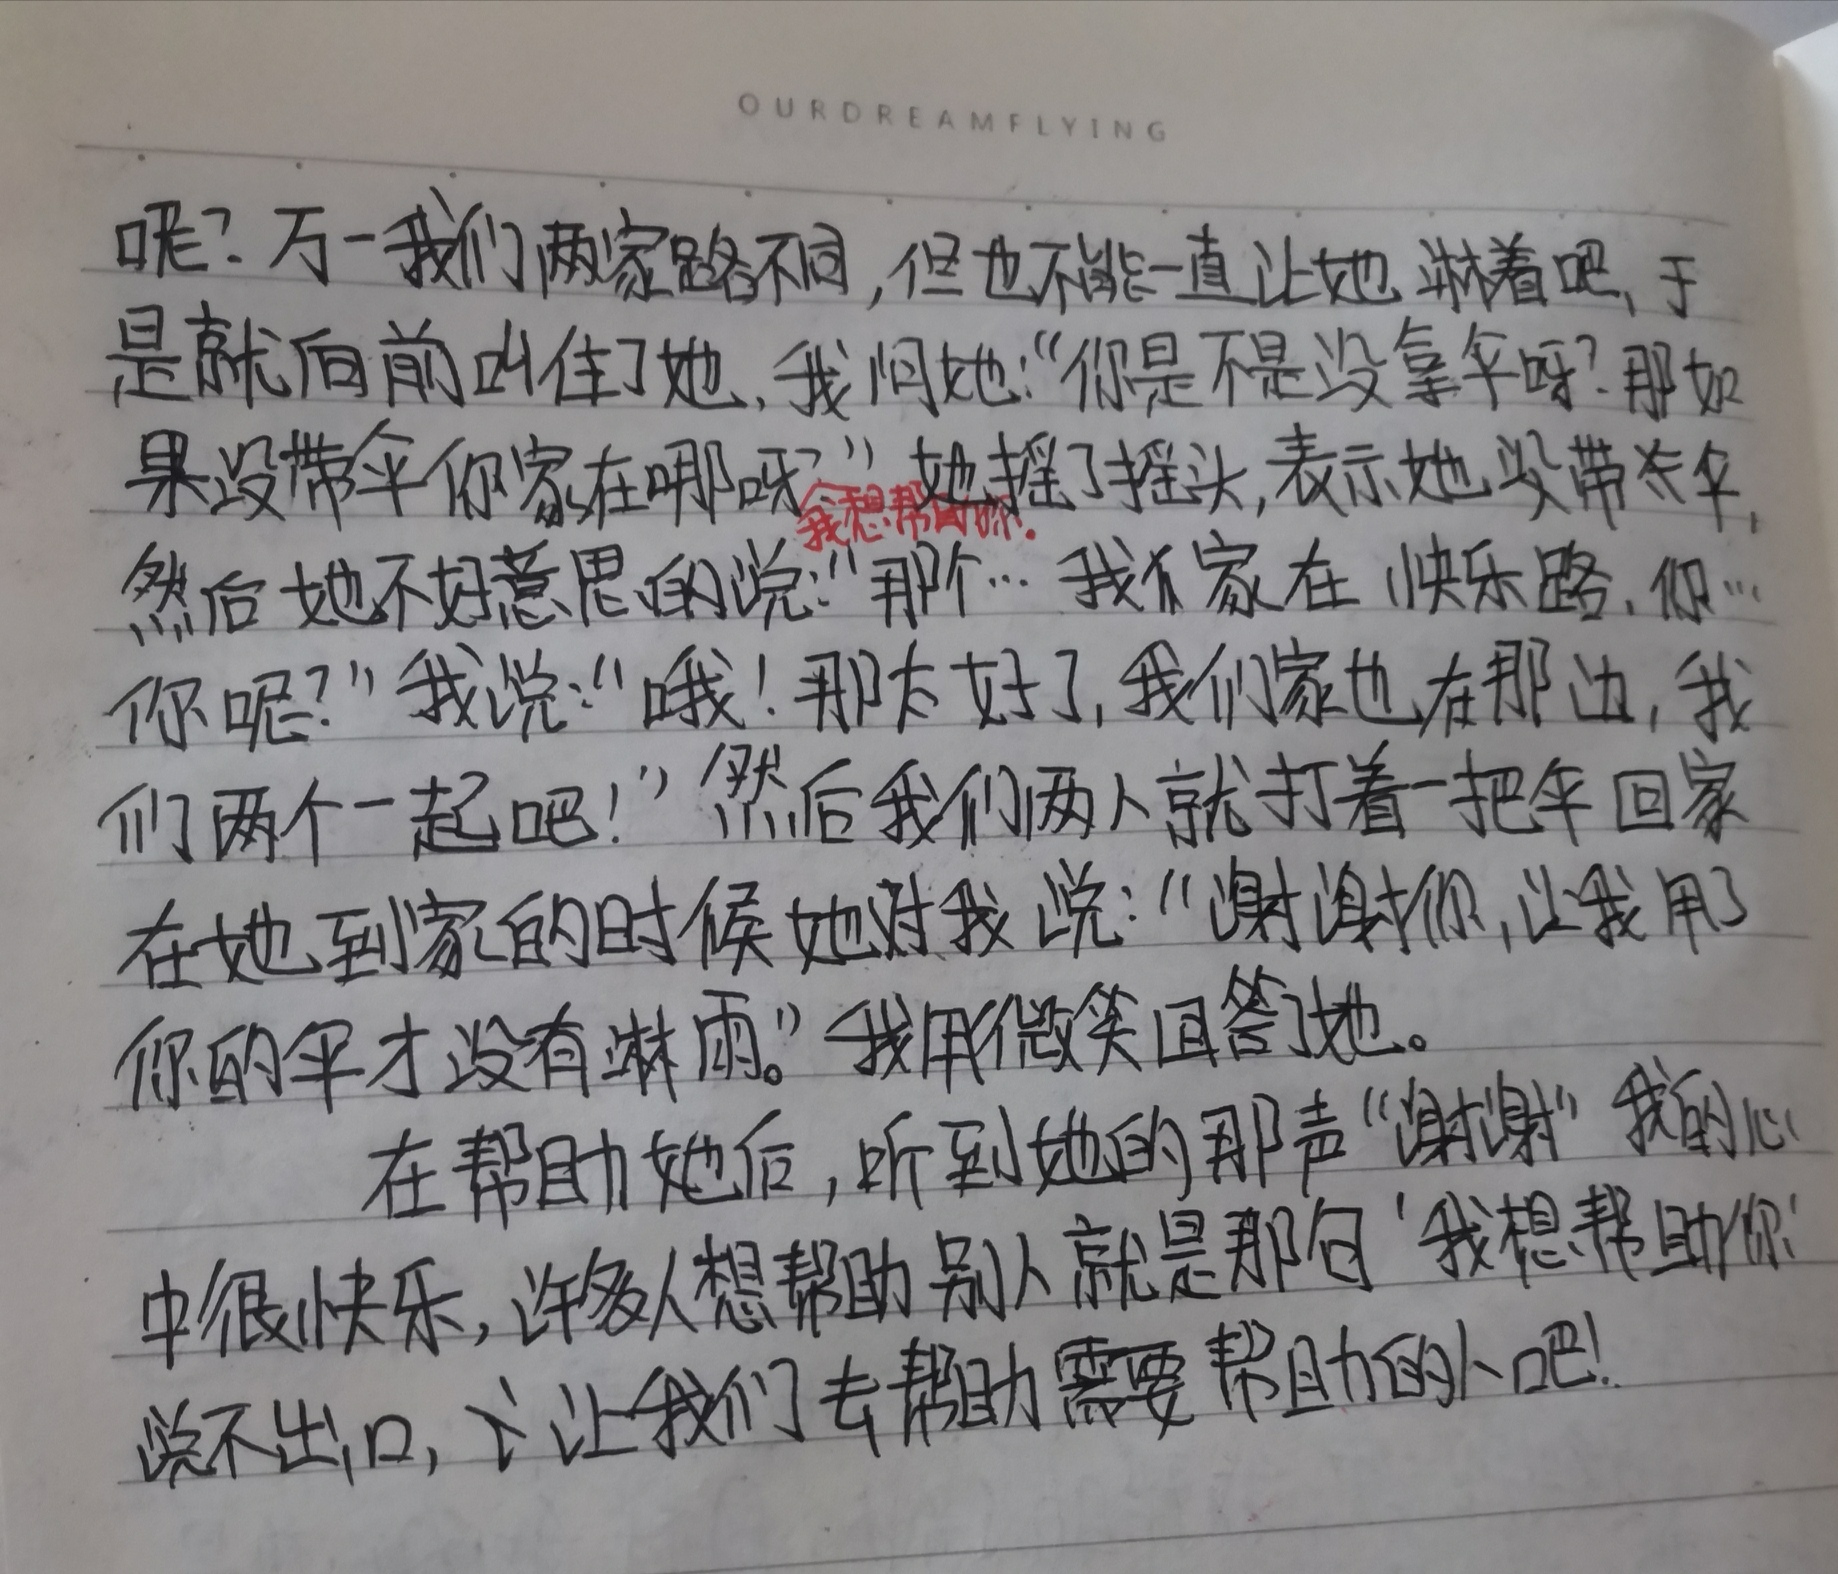 OURDREAMFLYING
呢？万一我们两家路不同，但也不能一直让她淋着吧，于
是就向前叫住了她，我问她：“你是不是没拿伞呀？那如
果没带伞你家在哪呀？”她摇了摇头，表示她没带伞，
我想帮助你。
然后她不好意思的说：“那个…我家在快乐路，你…
你呢？”我说：“哦！那太好了，我们家也在那边，我
们两个一起吧！”然后我们两人就打着一把伞回家
在她到家的时候她对我说：“谢谢你，让我用了
你的伞才没有淋雨。”我用微笑回答了她。
在帮助她后，听到她的那声“谢谢”我的心
中很快乐，许多人想帮助别人就是那句‘我想帮助你’
说不出口，让我们去帮助需要帮助的人吧！